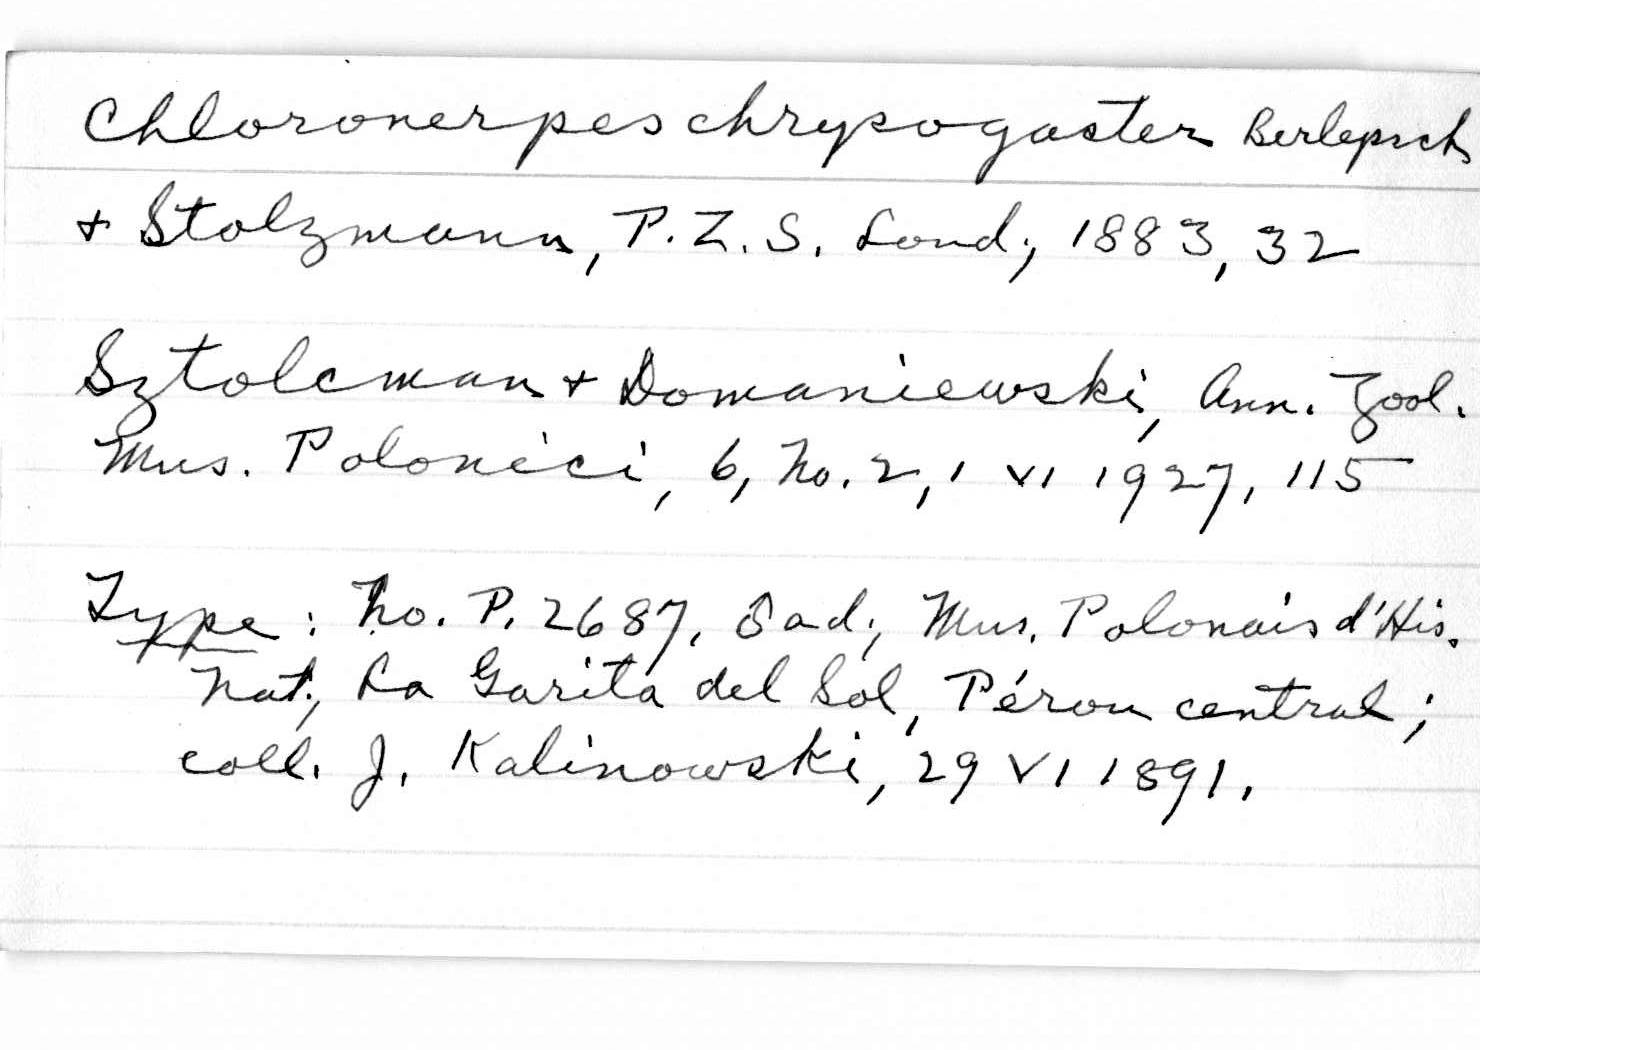 Chloronerpes chrysogaster Berlepsch
+ Stolzmann, P.Z.S. Lond., 1883, 32
Sztolcman + Domaniewski, Ann. Zool.
Mus. Polonici, 6, No. 2, 1 VI 1927, 115
Type: No. P. 2687, ♂ ad., Mus. Polonais d'His.
Nat., La Garita del Sol, Pérou central;
coll. J. Kalinowski, 29 VI 1891.